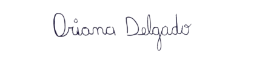 Oriana Delgado